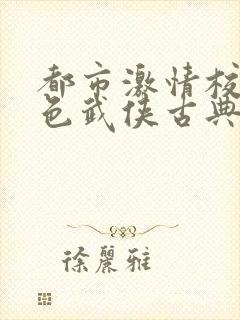 都市激情校
色武侠古典
徐丽雅